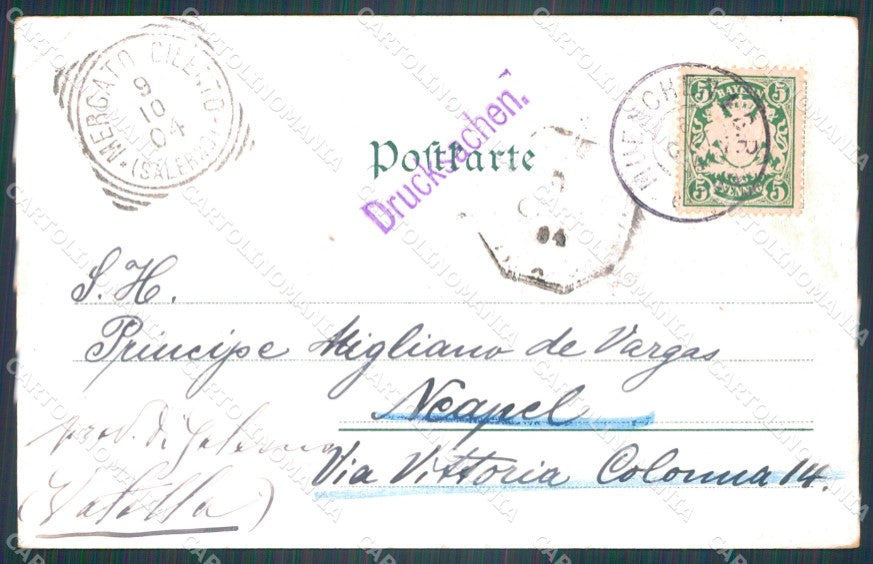 MERCATO CILENTO
9 10 04
(SALERNO)
Postkarte
Drucksachen.
5 BAYERN 5
5 PFENNIG 5
04
S. H.
Principe Migliano de Vargas
Neapel
Via Vittoria Colonna 14.
prov. di Salerno
(Vatolla)
CARTOLINOMANIA